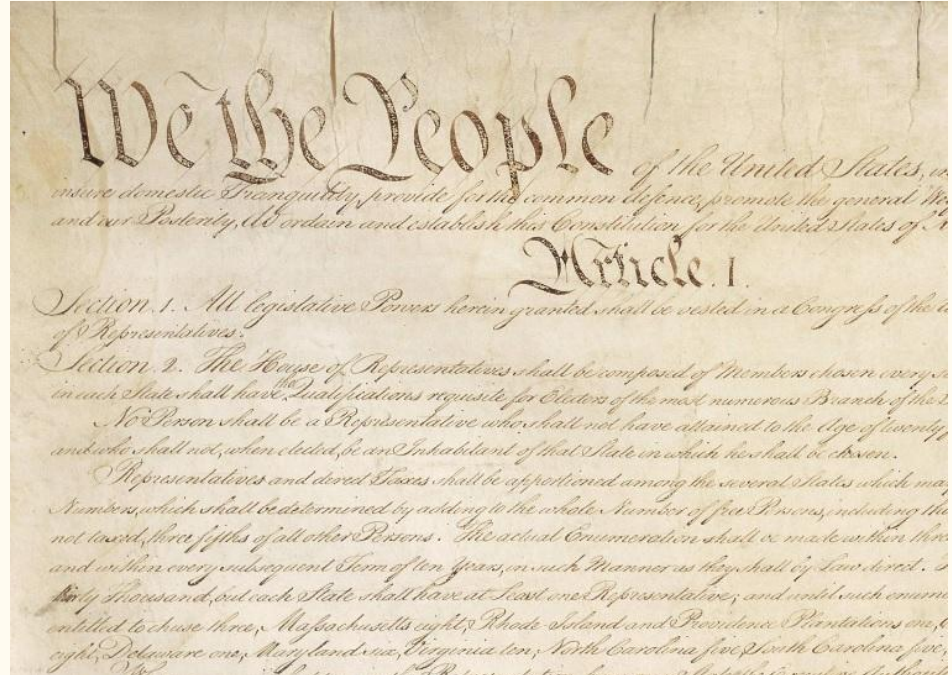 We the People of the United States, in
insure domestic Tranquility, provide for the common defence, promote the general Wel
and our Posterity, do ordain and establish this Constitution for the United States of A
Article. I.
Section. 1. All legislative Powers herein granted shall be vested in a Congress of the
of Representatives.
Section. 2. The House of Representatives shall be composed of Members chosen every se
in each State shall have the Qualifications requisite for Electors of the most numerous Branch of the
No Person shall be a Representative who shall not have attained to the Age of twenty
and who shall not, when elected, be an Inhabitant of that State in which he shall be chosen.
Representatives and direct Taxes shall be apportioned among the several States which may
Numbers, which shall be determined by adding to the whole Number of free Persons, including
not taxed, three fifths of all other Persons. The actual Enumeration shall be made within three
and within every subsequent Term of ten Years, in such Manner as they shall by Law direct.
thirty Thousand, but each State shall have at Least one Representative; and until such enume
entitled to chuse three, Massachusetts eight, Rhode-Island and Providence Plantations one,
eight, Delaware one, Maryland six, Virginia ten, North Carolina five, South Carolina five,